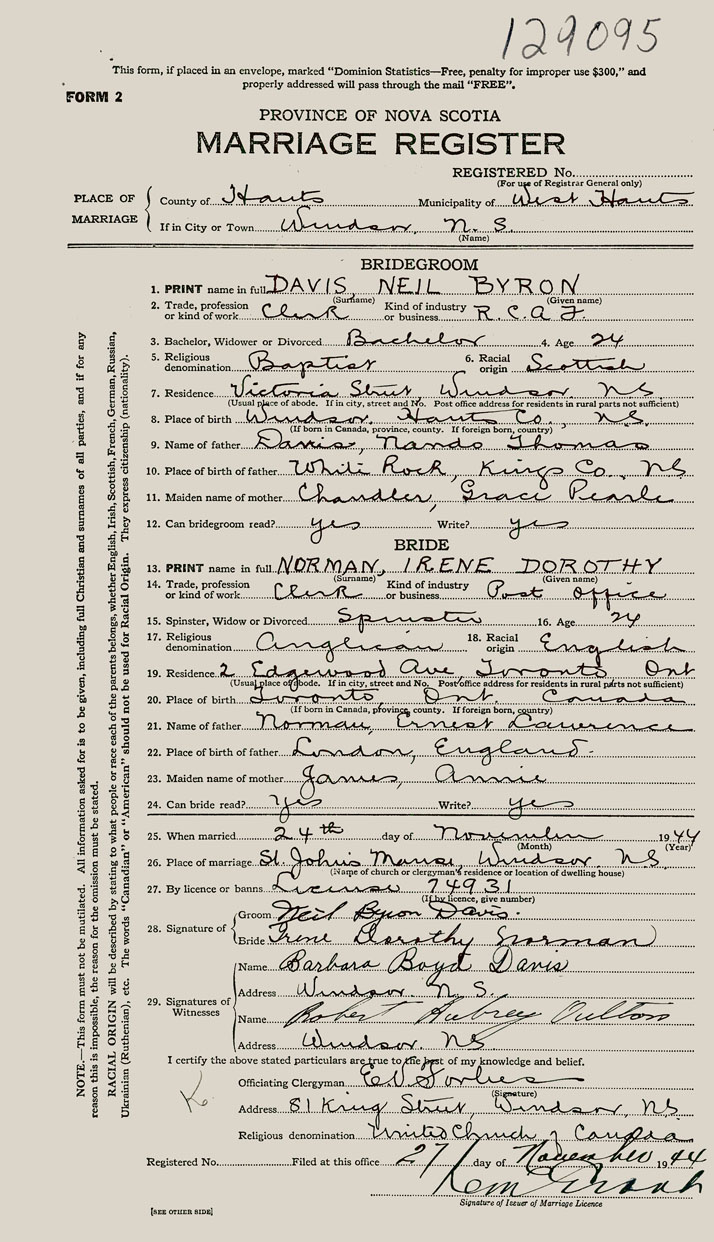 129095
This form, if placed in an envelope, marked “Dominion Statistics—Free, penalty for improper use $300,” and
properly addressed will pass through the mail “FREE”.
FORM 2
PROVINCE OF NOVA SCOTIA
MARRIAGE REGISTER
REGISTERED No.
(For use of Registrar General only)
PLACE OF MARRIAGE
County of Hants Municipality of West Hants
If in City or Town Windsor, N. S.
(Name)
BRIDEGROOM
1. PRINT name in full DAVIS, NEIL BYRON
(Surname) (Given name)
2. Trade, profession or kind of work Clerk Kind of industry or business R.C.A.F.
3. Bachelor, Widower or Divorced Bachelor 4. Age 24
5. Religious denomination Baptist 6. Racial origin Scottish
7. Residence Victoria Street, Windsor, NS
(Usual place of abode. If in city, street and No. Post office address for residents in rural parts not sufficient)
8. Place of birth Windsor, Hants Co., NS.
(If born in Canada, province, county. If foreign born, country)
9. Name of father Davis, Thomas
10. Place of birth of father White Rock, Kings Co., NS
11. Maiden name of mother Chandler, Grace Pearle
12. Can bridegroom read? yes Write? yes
BRIDE
13. PRINT name in full NORMAN, IRENE DOROTHY
(Surname) (Given name)
14. Trade, profession or kind of work Clerk Kind of industry or business Post office
15. Spinster, Widow or Divorced Spinster 16. Age 24
17. Religious denomination Anglican 18. Racial origin English
19. Residence 2 Edgewood Ave, Toronto Ont
(Usual place of abode. If in city, street and No. Post office address for residents in rural parts not sufficient)
20. Place of birth Toronto, Ont. Canada
(If born in Canada, province, county. If foreign born, country)
21. Name of father Norman, Ernest Lawrence
22. Place of birth of father London, England.
23. Maiden name of mother James, Annie
24. Can bride read? Yes Write? yes
25. When married 24th day of November 1944
(Month) (Year)
26. Place of marriage St. John's Manse, Windsor, NS
(Name of church or clergyman's residence or location of dwelling house)
27. By licence or banns License 74931
(If by licence, give number)
28. Signature of
Groom Neil Byron Davis.
Bride Irene Dorothy Norman
29. Signatures of Witnesses
Name Barbara Boyd Davis
Address Windsor, N. S.
Name Robert Aubrey Oulton
Address Windsor, NS
I certify the above stated particulars are true to the best of my knowledge and belief.
Officiating Clergyman Forbes
(Signature)
Address 81 King Street, Windsor, NS
Religious denomination United Church of Canada
Registered No. Filed at this office 27 day of November 1944
Signature of Issuer of Marriage Licence
[SEE OTHER SIDE]
NOTE.—This form must not be mutilated. All information asked for is to be given, including full Christian and surnames of all parties, and if for any
reason this is impossible, the reason for the omission must be stated.
RACIAL ORIGIN will be described by stating to what people or race each of the parents belongs, whether English, Irish, Scottish, French, German, Russian,
Ukrainian (Ruthenian), etc. The words “Canadian” or “American” should not be used for Racial Origin. They express citizenship (nationality).